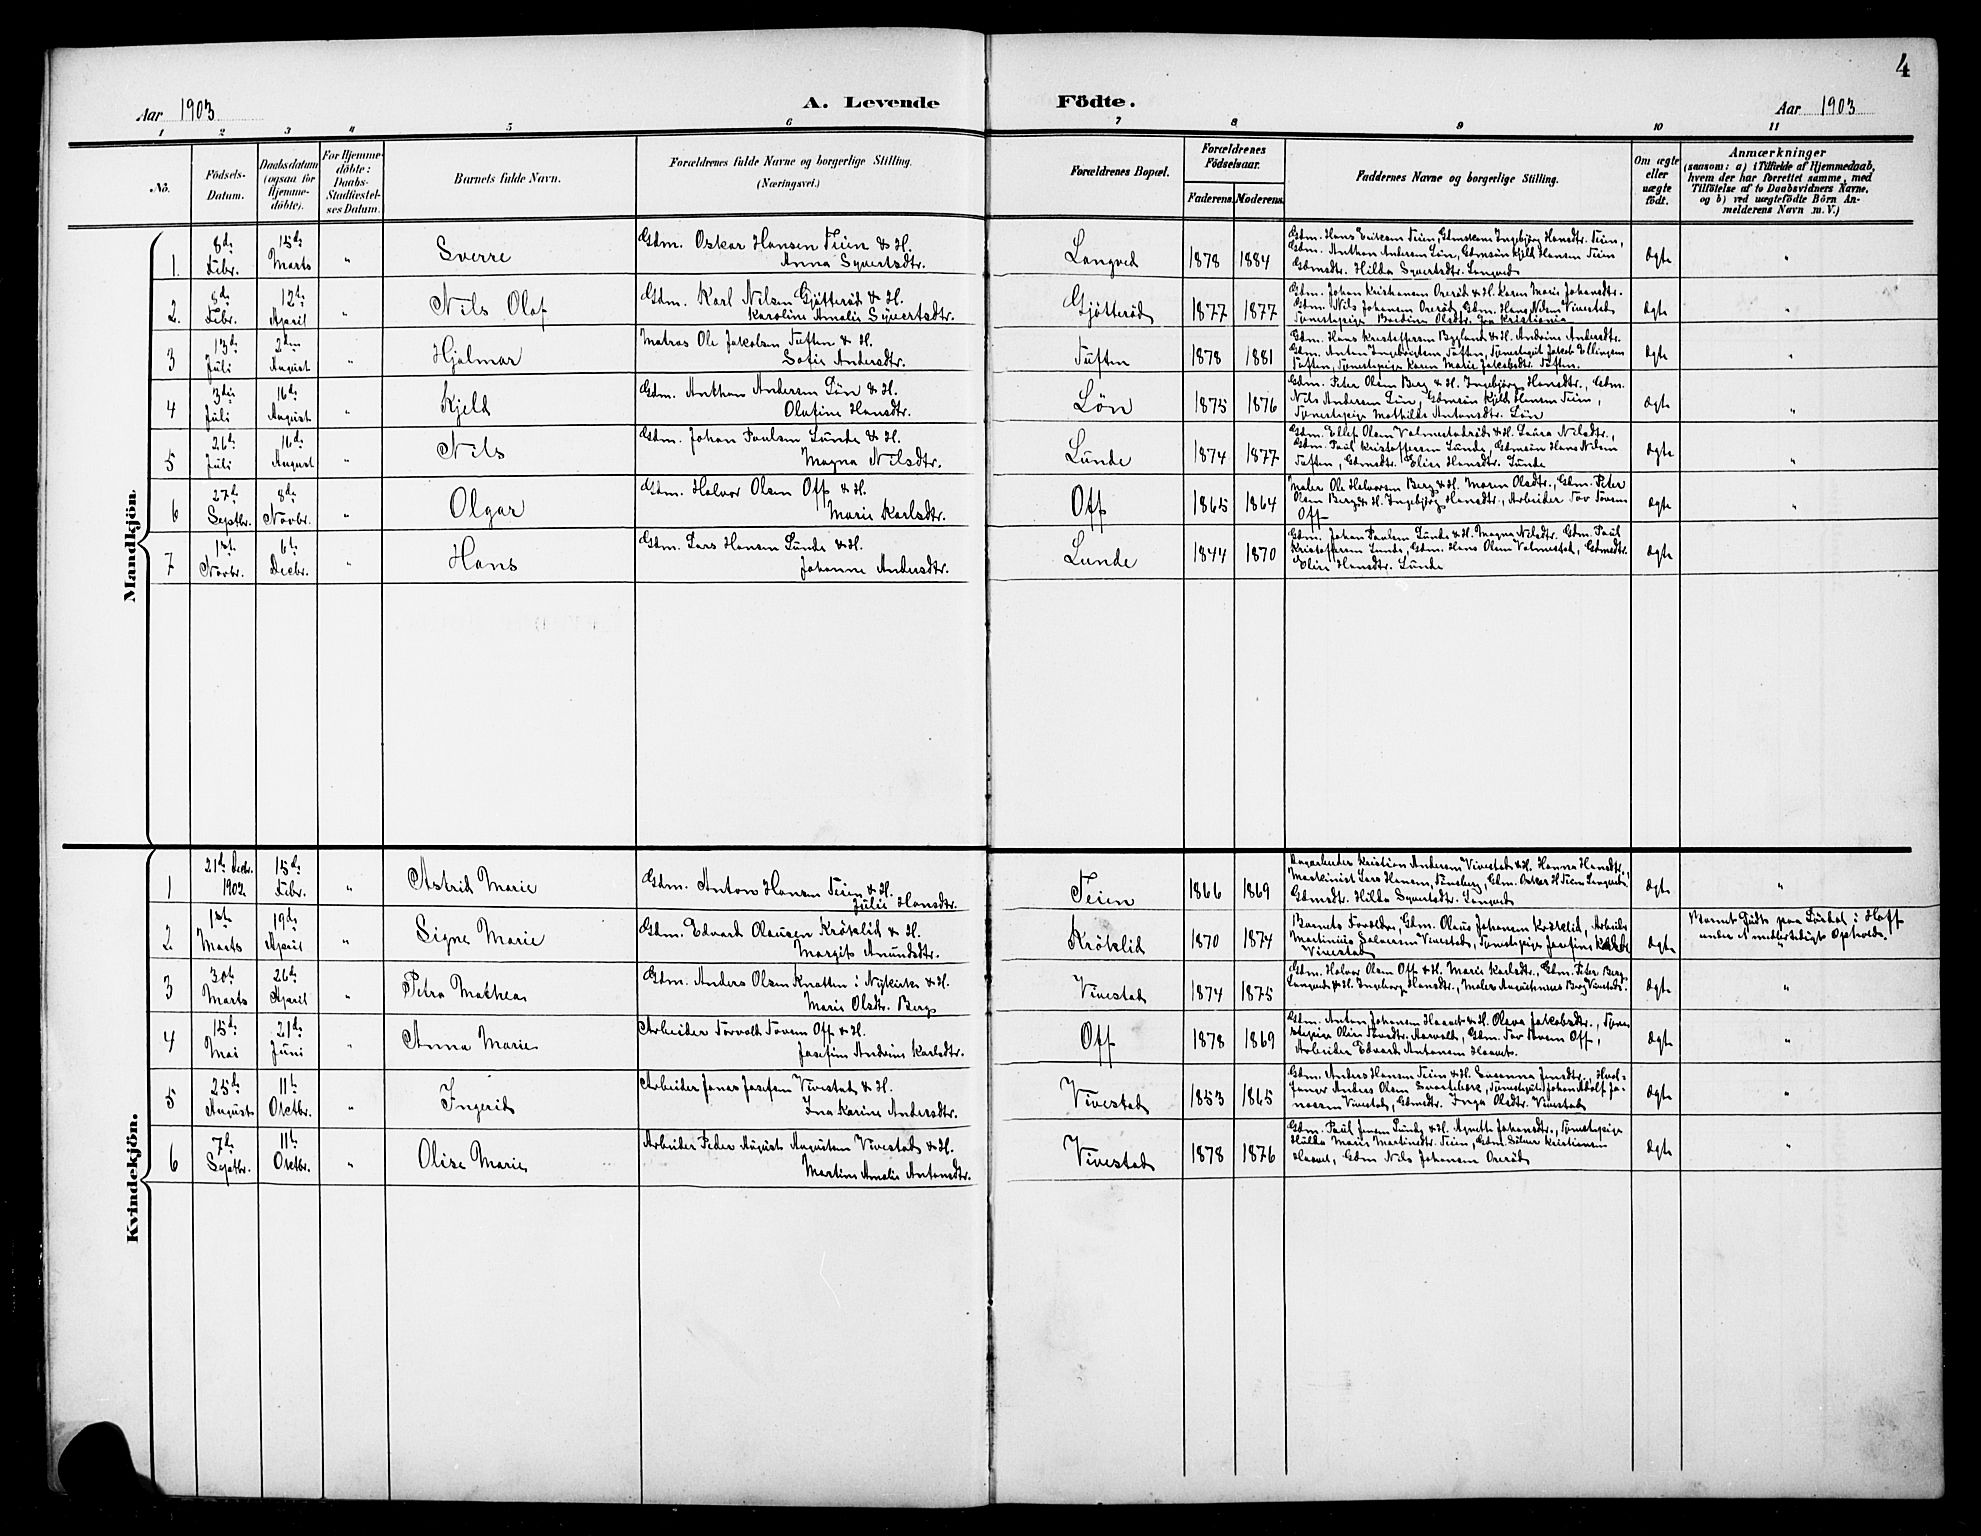 4
Aar 1903
A. Levende
Födte.
Aar 1903
1 2 3 4 5 6 7 8 9 10 11
No.
Födsels-Datum.
Daabsdatum (ogsaa for Hjemme-döbte).
For Hjemme-döbte: Daabs-Stadfæstel-ses Datum.
Barnets fulde Navn.
Forældrenes fulde Navne og borgerlige Stilling.
(Næringsvei.)
Forældrenes Bopæl.
Forældrenes Födselsaar.
Faderens. Moderens.
Faddernes Navne og borgerlige Stilling.
Om ægte eller uægte födt.
Anmærkninger
(saasom: a) i Tilfælde af Hjemmedaab,
hvem der har forrettet samme, med
Tilföielse af to Daabsvidners Navne.
og b) ved uægtefödte Börn An-
melderens Navn m. V.)
Mandkjön.
1. 8de Febr. 15de Marts " Sverre Gdm. Oskar Hansen Teien & H. Anna Syvertsdtr. Langved 1878 1884 Gdm. Hans Eriksen Teien, Gdmskone Ingebjørg Hansdtr. Teien,
Gdm. Anthon Andersen Løn, Gdmsøn Kjeld Hansen Teien
Gdmsdt. Hilda Syvertsdtr. Langved ægte "
2. 8de Febr. 12te April " Nils Olaf Gdm. Karl Nilsen Gjötteröd & H. Karoline Amalie Syvertsdtr. Gjötteröd 1877 1877 Gdm. Johan Kristiansen Oreröd & H. Karen Marie Johansdtr.
Gdm. Nils Johansen Oreröd, Gdm. Hans Nilsen Vivestad
Tjenestepige Bordine Olsdtr. fra Kristiania ægte "
3 13de Juli 2den August " Hjalmar Matros Ole Jakobsen Tuften & H. Sofie Andersdtr. Tuften 1878 1881 Gdm. Hans Kristoffersen Bygland & H. Andrine Andersdtr.
Gdm. Anton Ingebrigtsen Tuften, Tjenestegut Jakob Ellingsen
Tuften, Tjenestepige Karen Marie Jakobsdtr. Tuften. ægte "
4 3die Juli 16de August " Kjeld Gdm. Anthon Andersen Løn & H. Olafine Hansdtr. Løn 1875 1876 Gdm. Peter Olsen Berg & H. Ingebjørg Hansdtr., Gdm.
Nils Andersen Løn, Gdmsøn Kjeld Hansen Teien,
Tjenestepige Mathilde Antonsdtr. Løn ægte "
5 26de Juli 16de August " Nils Gdm. Johan Paulsen Lunde & H. Magna Nilsdtr. Lunde 1874 1877 Gdm. Ellef Olsen Valmestadröd & H. Laura Nilsdtr.,
Gdm. Paul Kristoffersen Lunde, Gdmsøn Hans Nilsen
Tuften, Gdmsdtr. Elise Hansdtr. Lunde ægte "
6 27de Septbr. 8de Novbr. " Olgar Gdm. Halvor Olsen Off & H. Marie Karlsdtr. Off 1865 1864 Maler Ole Halvorsen Berg & H. Maren Olsdtr., Gdm. Peter
Olsen Berg & H. Ingebjørg Hansdtr., Arbeider Tov Tovsen
Off ægte "
7 1ste Novbr. 6te Decbr. " Hans Gdm. Lars Hansen Lunde & H. Johanne Andersdtr. Lunde 1844 1870 Gdm. Johan Paulsen Lunde & H. Magna Nilsdtr. Gdm. Paul
Kristoffersen Lunde, Gdm. Hans Olsen Valmestad, Gdmsdtr.
Elise Hansdtr. Lunde ægte
Kvindekjön.
1 21de Decbr. 1902 15de Febr. " Astrid Marie Gdm. Anton Hansen Teien & H. Julie Hansdtr. Teien 1866 1869 Dagarbeider Kristian Andersen Vivestad & H. Hanna Hansdt.,
Maskinist Lars Hansen, Tønsberg, Gdm. Oskar H. Teien Langved
Gdmsdt. Hilda Syvertsdtr. Langved ægte "
2 1ste Marts 19de April " Signe Marie Gdm. Edvard Olausen Kröklid & H. Margit Amundsdtr. Kröklid 1870 1874 Barnets Forældre, Gdm. Olaus Johansen Kröklid, Arbeider
Martinius Salvesen Vivestad, Tjenestepige Josefine
Vivestad ægte Barnet Födt paa i Hoff
under et midlertidigt Ophold.
3 30te Marts 26de April " Petra Mathea Gdm. Anders Olsen Knatten i Nykirke & H. Marie Olsdtr. Berg Vivestad 1874 1875 Gdm. Halvor Olsen Off & H. Marie Karlsdtr., Gdm. Peter Berg
Langved & H. Ingeborg Hansdtr., Maler Augustinius Berg Vivestad. ægte "
4 15de Mai 21de Juni " Anna Marie Arbeider Torvald Tovsen Off & H. Josefine Andrine Karlsdtr. Off 1878 1869 Gdm. Anton Johansen Haavet & H. Olava Jakobsdtr., Tjene-
stepige Oline Tovsdtr. Aarvold, Gdm. Tov Tovsen Off,
Arbeider Edvard Antonsen Haavet. ægte "
5 25de August 11te Octbr. " Ingerid Arbeider Jonas Josefsen Vivestad & H. Ina Karine Andersdtr. Vivestad 1853 1865 Gdm Anders Hansen Teien & H. Susanna Jensdtr., Hval-
fanger Anders Olsen Svartebæk, Tjenestegut Johan Adolf Jo-
nassen Vivestad, Gdmsdtr. Inga Olsdtr. Vivestad ægte "
6 7de Septbr. 11te Octbr. " Olise Marie Arbeider Peder August Augustsen Vivestad & H. Martine Amalie Antonsdtr. Vivestad 1878 1876 Gdm. Paul Jensen Lunde & H. Agnethe Johansdtr., Tjenestepige
Hulda Marie Martinsdtr. Teien, Gdm. Kristiansen
Haavet, Gdm Nils Johansen Oreröd ægte "